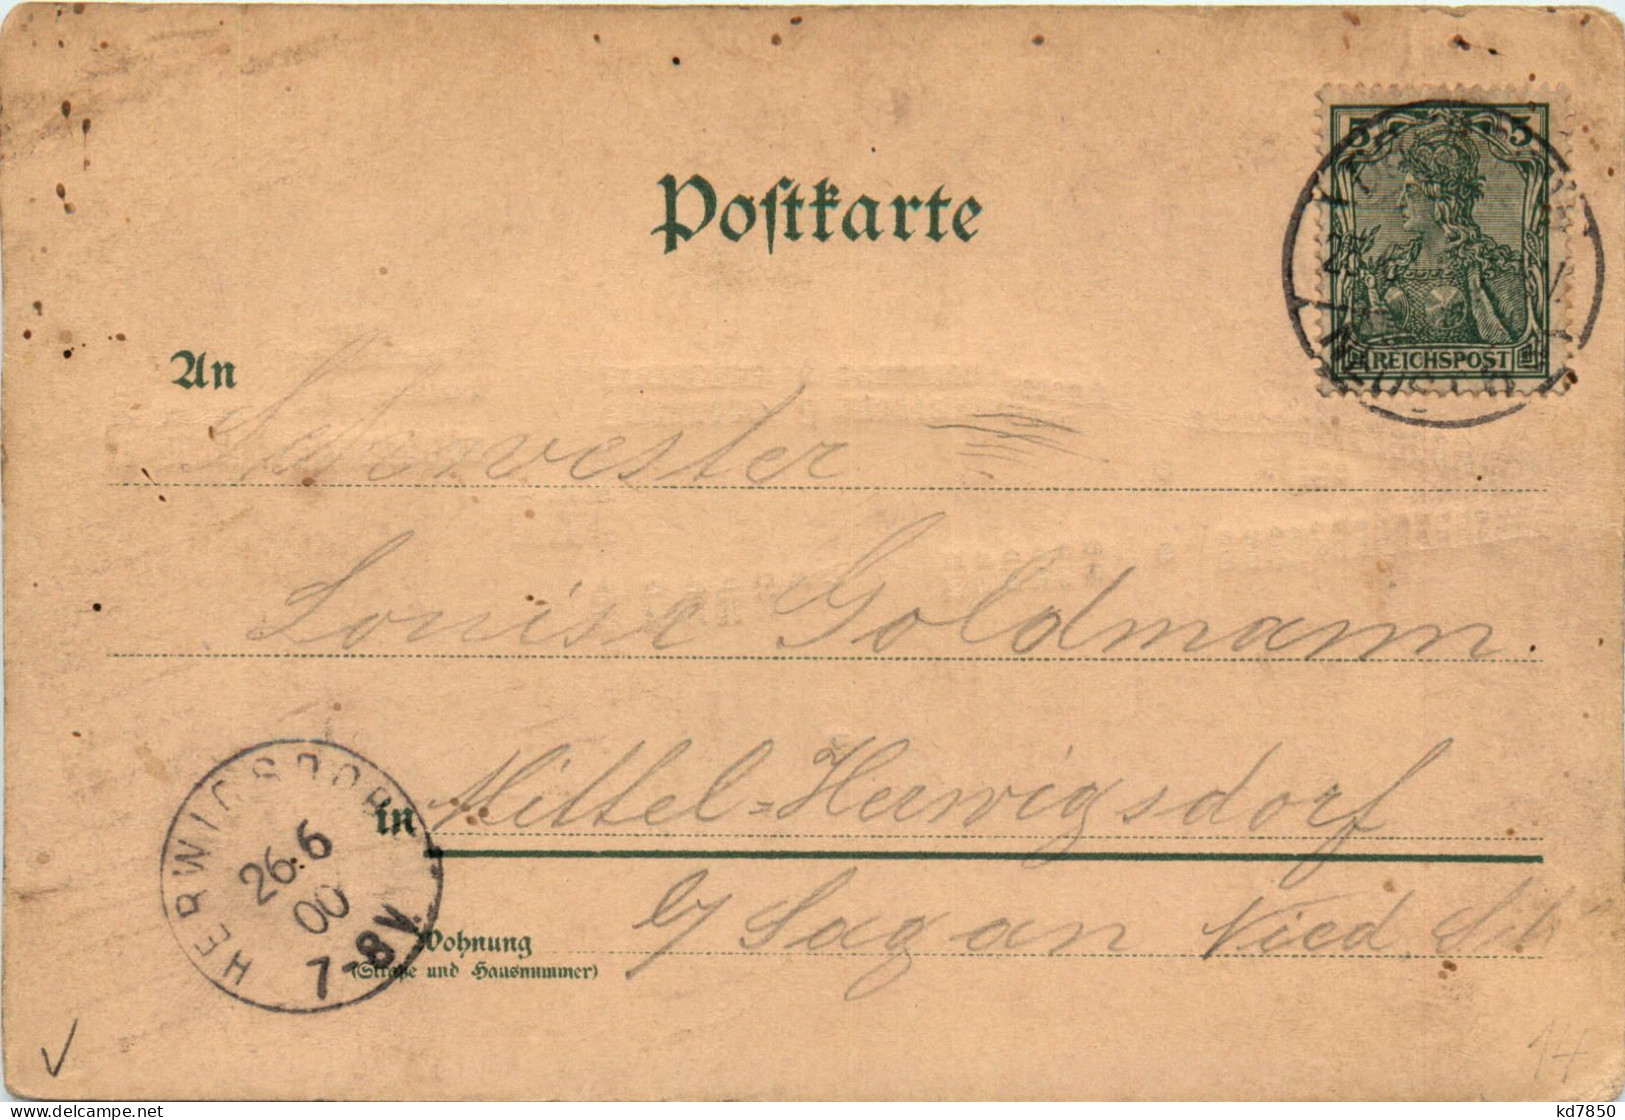 Postkarte
5 5
REICHSPOST
An
Schwester
Louise Goldmann.
in Mittel=Herwigsdorf
b/ Sagan Nied Sch
Wohnung
(Straße und Hausnummer)
HERWIGSDORF
26.6
00
7-8V.
14
kd7850
www.delcampe.net